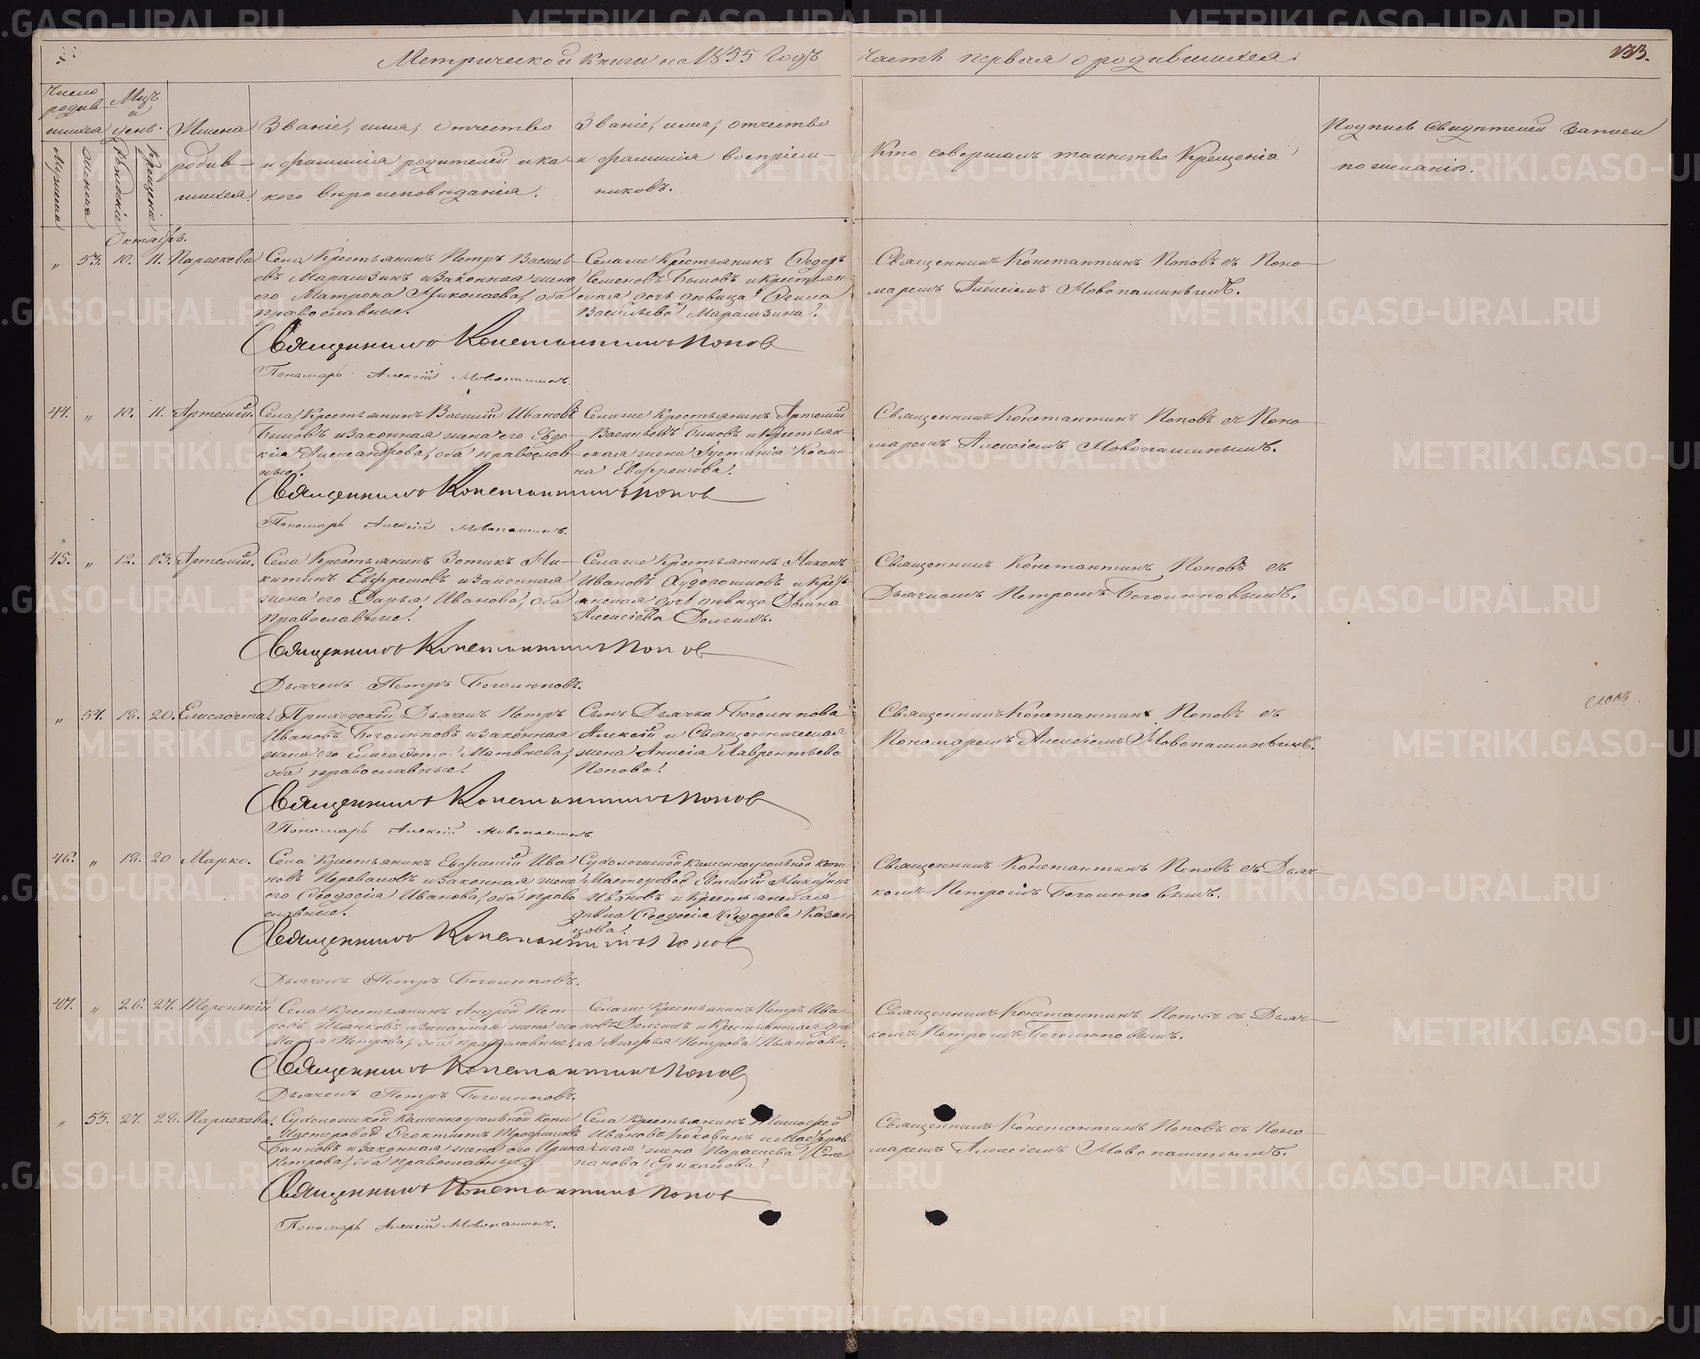 Метрической Книги на 1855 Годъ
Часть первая о родившихся.
133.
Число родив-шихся
Мцъ и день.
Имена родив-шихся.
Званіе, имя, отчество
и фамилія родителей и ка-
кого вѣроисповѣданія.
Званіе, имя, отчество
и фамилія воспріем-
никовъ.
Кто совершалъ таинство Крещенія
Подпись свидѣтелей записи
по желанію.
Мужеска
Женска
Рожденія
Крещенія
Октябрь.
„ 53. 10. 11. Параскева
Села Крестьянинъ Петръ Василь-
евъ и законная жена
его Матрона Николаева, оба
православные.
Селаже Крестьянинъ Ѳедоръ
Семеновъ Быковъ и Крестьян-
ская дочь дѣвица
Васильева
Священникъ Константинъ Поповъ съ Поно-
маремъ Алексіемъ Новопашинымъ.
Священникъ Константинъ Попов
Пономарь Алексій Новопашинъ.
44. „ 10. 11. Артемій.
Села Крестьянинъ Василій Ивановъ
Быковъ и законная жена его Евдо-
кія Александрова, оба православ-
ные.
Селаже Крестьянинъ Артемій
Васильевъ Быковъ и Крестьян-
ская жена Іустинія Косми-
на Ефремова.
Священникъ Константинъ Поповъ съ Поно-
маремъ Алексіемъ Новопашинымъ.
Священникъ Константинъ Попов
Пономарь Алексій Новопашинъ.
45. „ 12. 13. Артемій.
Села Крестьянинъ Зотикъ Ни-
китинъ Ефремовъ и законная
жена его Дарья Иванова, оба
православные.
Селаже Крестьянинъ Никонъ
Ивановъ Худорошковъ и Кресть-
янская дочь дѣвица
Алексіева Долгихъ.
Священникъ Константинъ Поповъ съ
Дьячкомъ Петромъ Боголѣповымъ.
Священникъ Константинъ Попов
Дьячекъ Петръ Боголѣповъ.
„ 54. 18. 20. Елисавета.
Приходскій Дьячекъ Петръ
Ивановъ Боголѣповъ и законная
жена его Елисавета Матвѣева,
оба православные.
Сынъ Дьячка Боголѣпова
Алексій и Священническая
жена Анисія Лаврентьева
Попова.
Священникъ Константинъ Поповъ съ
Пономаремъ Алексіемъ Новопашинымъ.
Священникъ Константинъ Попов
Пономарь Алексій Новопашинъ.
46. „ 18. 20 Марко.
Села Крестьянинъ Евфимій Ива-
новъ Переваловъ и законная жена
его Ѳеодосія Иванова, оба право-
славные.
Сухоложской Каменноугольной копи
Мастеровой Никитинъ
Ивановъ и Крестьянская
дѣвка Ѳеодосія Ѳедорова Казан-
цова.
Священникъ Константинъ Поповъ съ Дьяч-
комъ Петромъ Боголѣповымъ.
Священникъ Константинъ Попов
Дьячекъ Петръ Боголѣповъ.
47. „ 26. 27. Терентій
Села Крестьянинъ Андрей Пет-
ровъ Пьянковъ и законная жена его
Марья Петрова, оба православные.
Селаже Крестьянинъ Петръ Ива-
новъ Долгихъ и Крестьянская дѣв-
ка Агафья Петрова Пьянкова.
Священникъ Константинъ Поповъ съ Дьяч-
комъ Петромъ Боголѣповымъ.
Священникъ Константинъ Попов
Дьячекъ Петръ Боголѣповъ.
„ 55. 27. 28. Параскева.
Сухоложской Каменноугольной Копи
Мастеровой Ѳеоктистъ Трофимовъ
и законная жена его Ирина
Петрова, оба православные.
Села Крестьянинъ Тимофей
Ивановъ Коковинъ и Мастеров-
ская жена Параскева Сте-
панова Ермакова.
Священникъ Константинъ Поповъ съ Поно-
маремъ Алексіемъ Новопашинымъ.
Священникъ Константинъ Попов
Пономарь Алексій Новопашинъ.
METRIKI.GASO-URAL.RU